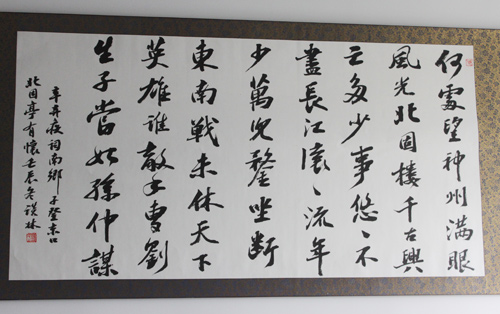 何處望神州滿眼
風光北固樓千古興
亡多少事悠〻不
盡長江滾〻流年
少萬兜鍪坐斷
東南戰未休天下
英雄誰敵手曹劉
生子當如孫仲謀
辛弃疾詞南鄉子登京口
北固亭有懷壬辰冬林